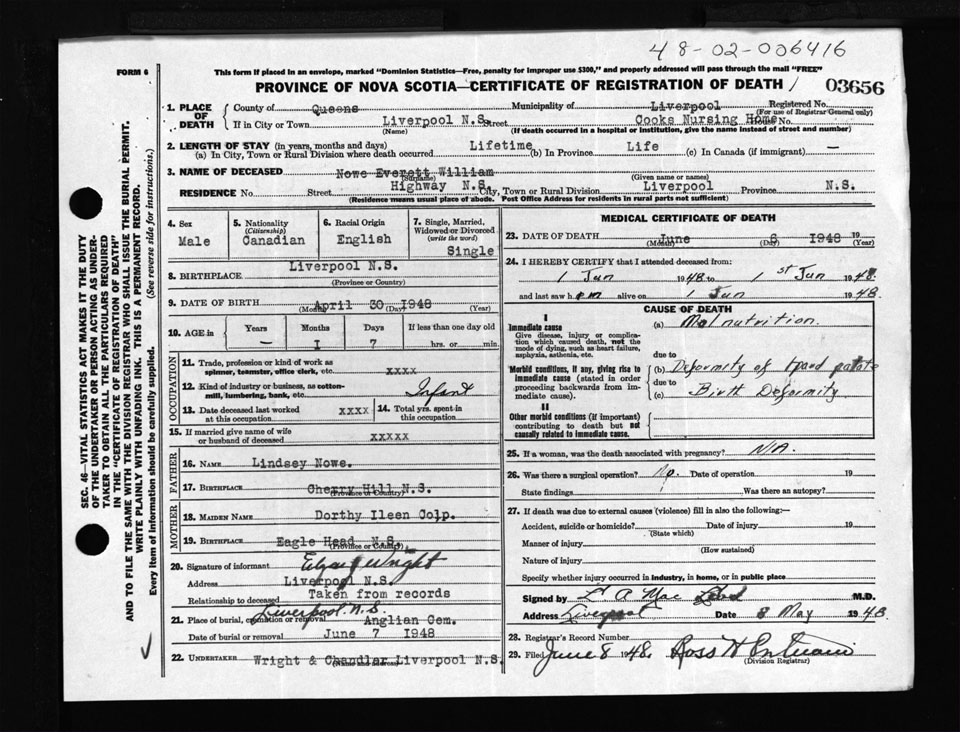 48-02-006416
FORM 6
This form if placed in an envelope, marked "Dominion Statistics—Free, penalty for improper use $300," and properly addressed will pass through the mail "FREE"
PROVINCE OF NOVA SCOTIA—CERTIFICATE OF REGISTRATION OF DEATH / 03656
SEC. 46—VITAL STATISTICS ACT MAKES IT THE DUTY
OF THE UNDERTAKER OR PERSON ACTING AS UNDER-
TAKER TO OBTAIN ALL THE PARTICULARS REQUIRED
IN THE "CERTIFICATE OF REGISTRATION OF DEATH"
AND TO FILE THE SAME WITH THE DIVISION REGISTRAR WHO SHALL ISSUE THE BURIAL PERMIT.
WRITE PLAINLY WITH UNFADING INK. THIS IS A PERMANENT RECORD.
Every item of information should be carefully supplied. (See reverse side for instructions.)
1. PLACE OF DEATH
County of Queens Municipality of Liverpool Registered No.
(For use of Registrar General only)
If in City or Town Liverpool N.S. Street Cooks Nursing Home House No.
(Name) (If death occurred in a hospital or institution, give the name instead of street and number)
2. LENGTH OF STAY (in years, months and days)
(a) In City, Town or Rural Division where death occurred Lifetime (b) In Province Life (c) In Canada (if immigrant) —
3. NAME OF DECEASED Nowe Everett William
(Surname) (Given name or names)
RESIDENCE No. Street Highway N.S. City, Town or Rural Division Liverpool Province N.S.
(Residence means usual place of abode. Post Office Address for residents in rural parts not sufficient)
4. Sex Male
5. Nationality (Citizenship) Canadian
6. Racial Origin English
7. Single, Married, Widowed or Divorced (write the word) Single
8. BIRTHPLACE Liverpool N.S.
(Province or Country)
9. DATE OF BIRTH April 30 1948
(Month) (Day) (Year)
10. AGE in Years Months Days If less than one day old
— I 7 hrs. or min.
OCCUPATION
11. Trade, profession or kind of work as
spinner, teamster, office clerk, etc. xxxx
12. Kind of industry or business, as cotton-
mill, lumbering, bank, etc. Infant
13. Date deceased last worked at this occupation xxxx
14. Total yrs. spent in this occupation
15. If married give name of wife
or husband of deceased xxxxx
FATHER
16. NAME Lindsey Nowe.
17. BIRTHPLACE Cherry Hill N.S.
(Province or Country)
MOTHER
18. MAIDEN NAME Dorthy Ileen Colp.
19. BIRTHPLACE Eagle Head N.S.
(Province or Country)
20. Signature of informant Wright
Address Liverpool N.S.
Relationship to deceased Taken from records
Liverpool N.S.
21. Place of burial, cremation or removal Anglian Cem.
Date of burial or removal June 7 1948
22. UNDERTAKER Wright & Chandler Liverpool N.S.
MEDICAL CERTIFICATE OF DEATH
23. DATE OF DEATH June 6 1948 19
(Month) (Day) (Year)
24. I HEREBY CERTIFY that I attended deceased from:
1 Jun 1948 to 1st Jun 1948.
and last saw him alive on 1 Jun 1948.
CAUSE OF DEATH
I
Immediate cause
Give disease, injury or complica-
tion which caused death, not the
mode of dying, such as heart failure,
asphyxia, asthenia, etc.
(a) Malnutrition.
due to
Morbid conditions, if any, giving rise to
immediate cause (stated in order
proceeding backwards from im-
mediate cause).
(b) Deformity of hard palate
due to
(c) Birth Deformity
II
Other morbid conditions (if important)
contributing to death but not
causally related to immediate cause.
25. If a woman, was the death associated with pregnancy? N/A.
26. Was there a surgical operation? No. Date of operation 19
State findings Was there an autopsy?
27. If death was due to external causes (violence) fill in also the following:—
Accident, suicide or homicide? Date of injury 19
(State which)
Manner of injury
(How sustained)
Nature of injury
Specify whether injury occurred in industry, in home, or in public place
Signed by Mac M.D.
Address Liverpool Date 8 May 1948
28. Registrar's Record Number
29. Filed June 8 1948. Ross H Putnam
(Division Registrar)